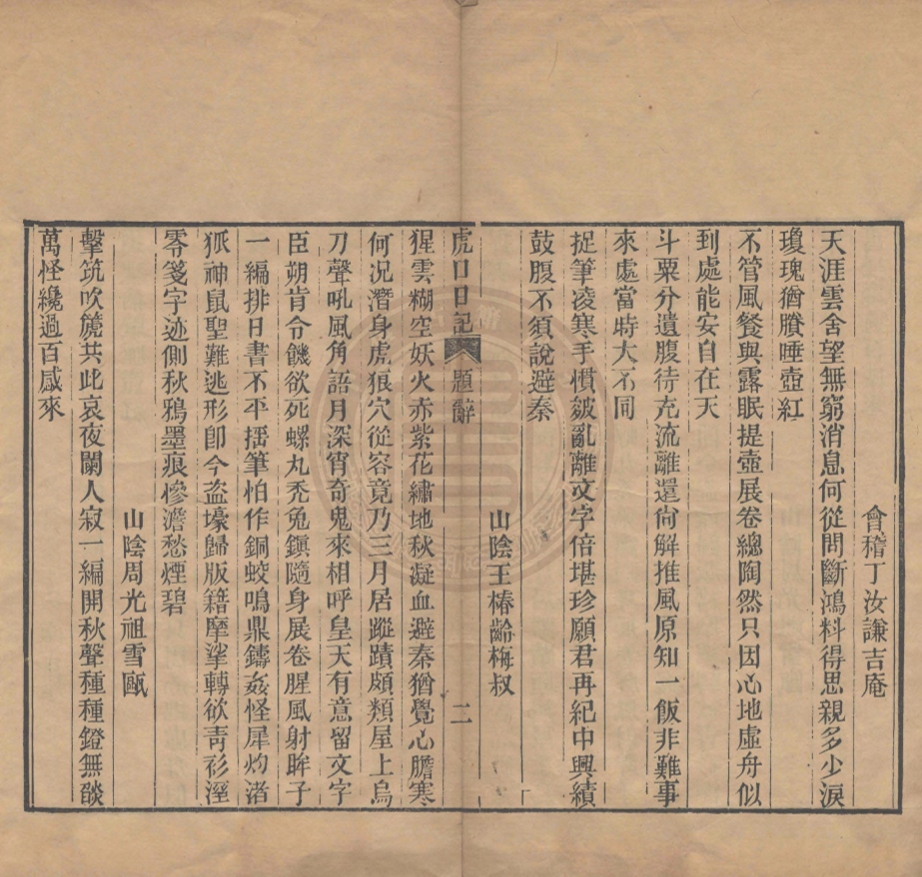 會稽丁汝謙吉庵
天涯雲舍望無窮消息何從問斷鴻料得思親多少淚
瓊瑰猶賸唾壺紅
不管風餐與露眠提壺展卷總陶然只因心地虛舟似
到處能安自在天
斗粟分遺腹待充流離還尙解推風原知一飯非難事
來處當時大不同
捉筆凌寒手慣皴亂離文字倍堪珍願君再紀中興績
鼓腹不須說避秦
山陰王椿齡梅叔
虎口日記 題辭 二
猩雲糊空妖火赤紫花繡地秋凝血避秦猶覺心膽寒
何況潛身虎狼穴從容竟乃三月居蹤蹟頗類屋上烏
刀聲吼風角語月深宵奇鬼來相呼皇天有意留文字
臣朔肯令饑欲死螺丸禿兔鎭隨身展卷腥風射眸子
一編排日書不平搔筆怕作銅蛟鳴鼎鑄姦怪犀灼渚
狐神鼠聖難逃形卽今盗壕歸版籍摩挲轉欲靑衫溼
零箋字迹側秋鴉墨痕慘澹愁煙碧
山陰周光祖雪甌
擊筑吹篪共此哀夜闌人寂一編開秋聲種種鐙無燄
萬怪纔過百感來